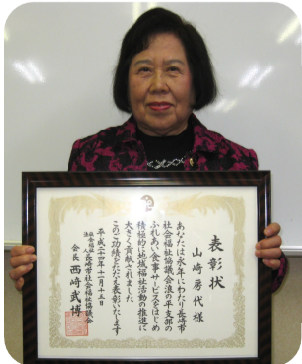 表彰状
山崎房代様
あなたは永年にわたり長崎市
社会福祉協議会浪の平支部の
ふれあい食事サービスをはじめ
積極的に地域福祉活動の推進に
大きく貢献されました
この功績をたたえ表彰いたします
平成二十四年十一月十五日
社会福祉法人長崎市社会福祉協議会
会長西崎武博